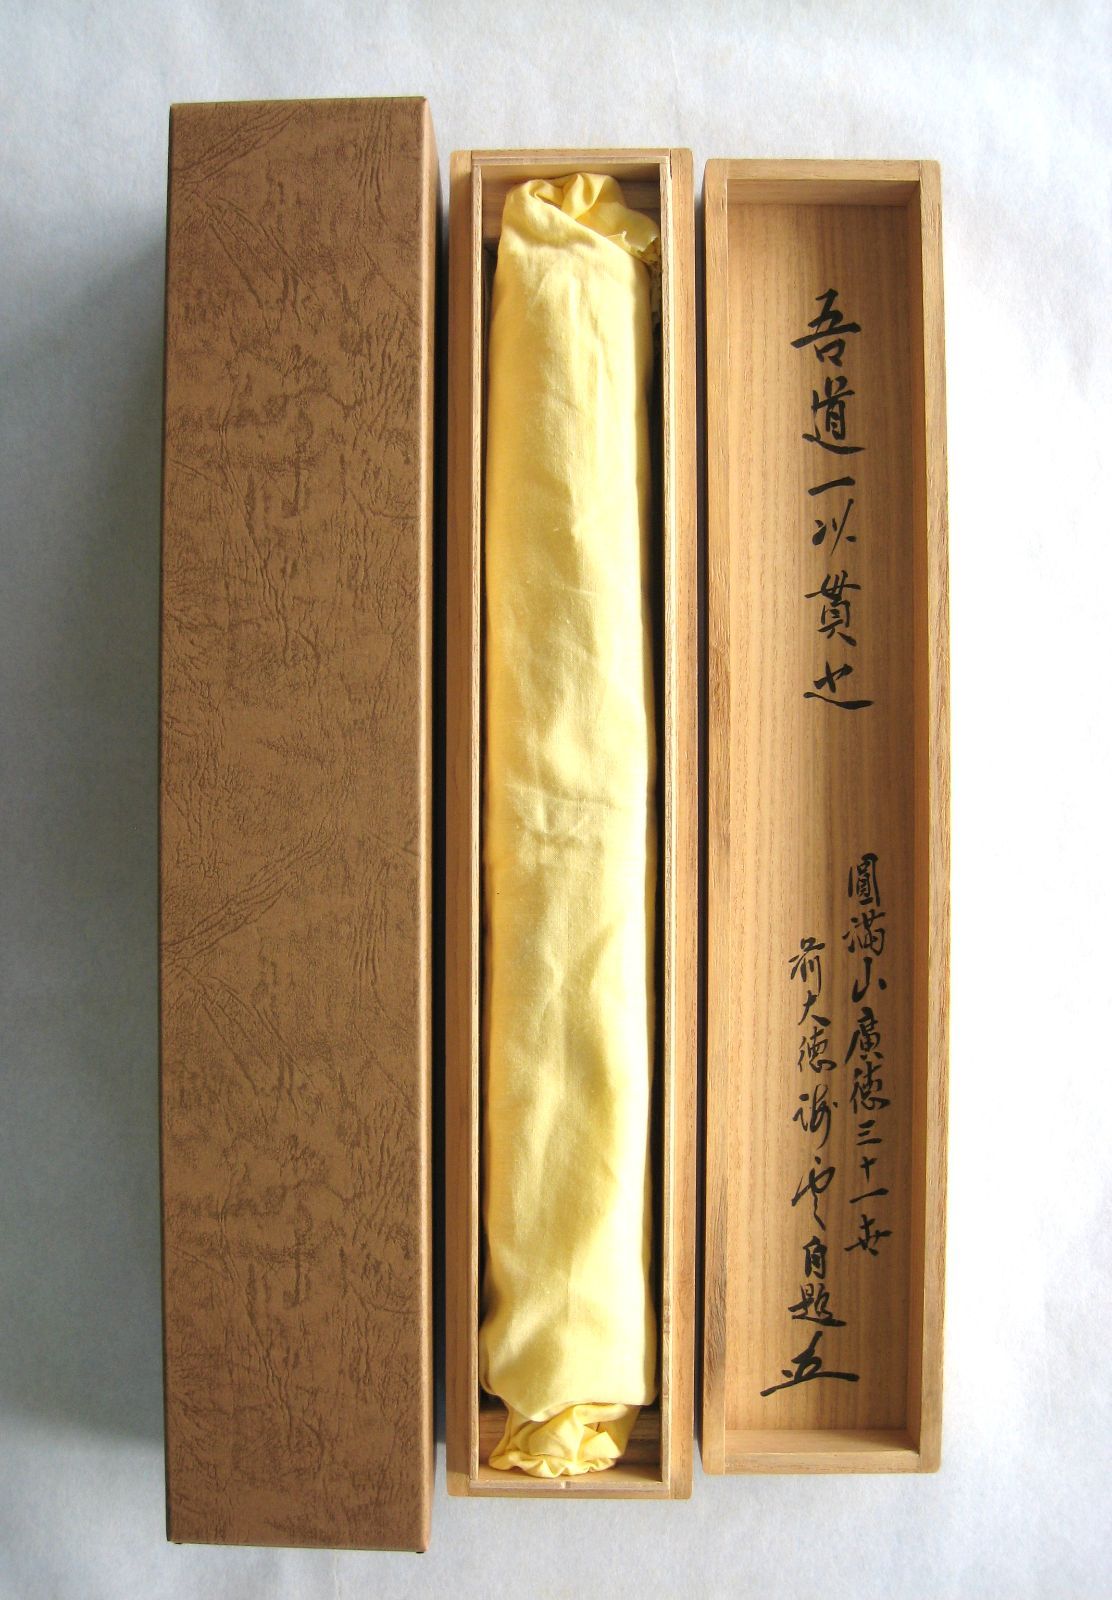 吾道一以貫也
圓滿山廣徳三十一世
前大徳海雲自題